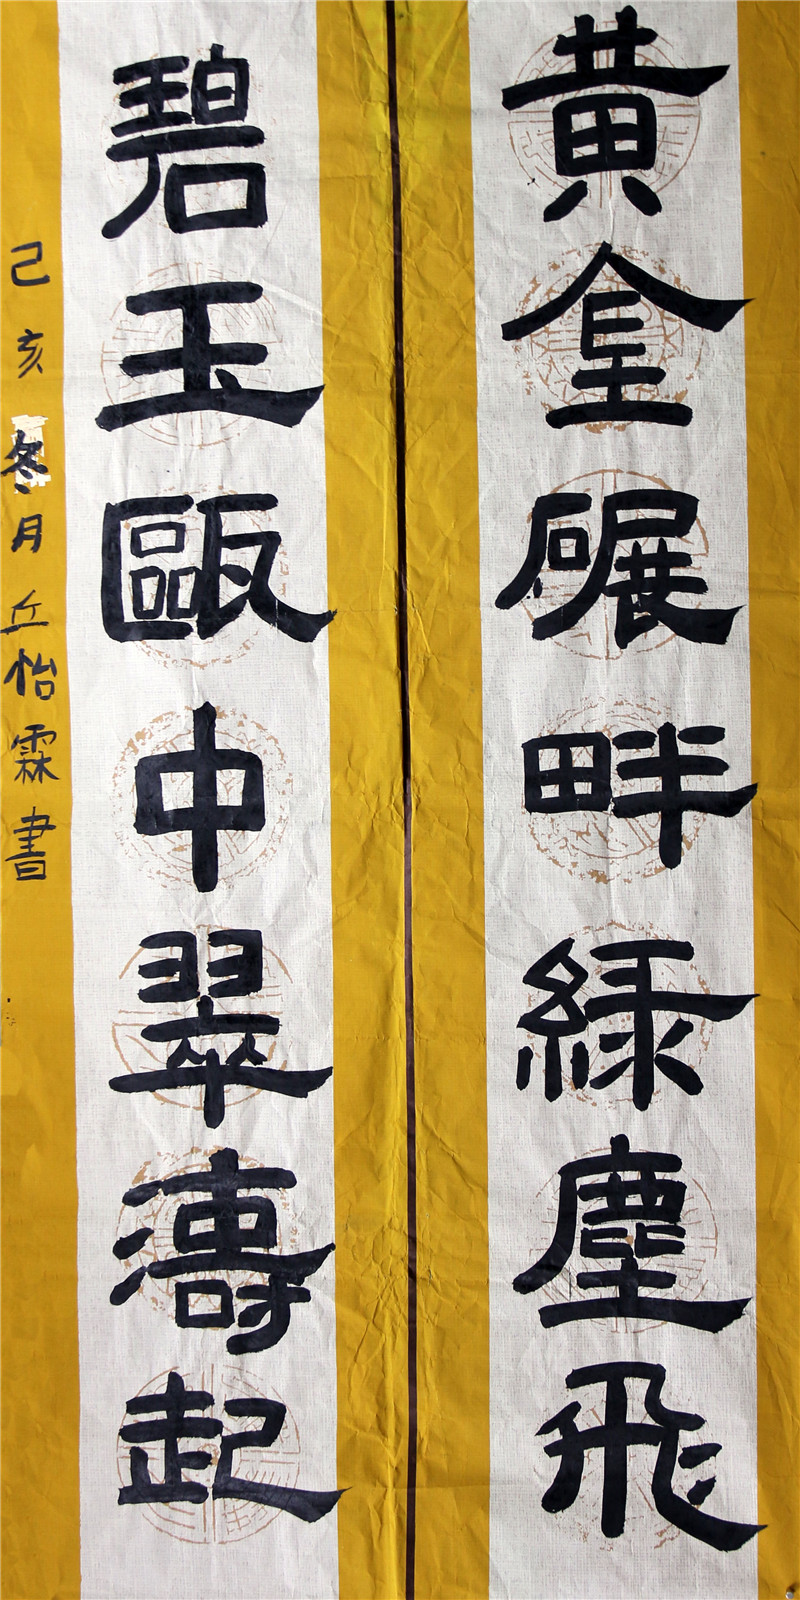 黄金碾畔綠塵飛
碧玉甌中翠濤起
己亥冬月丘怡霖書